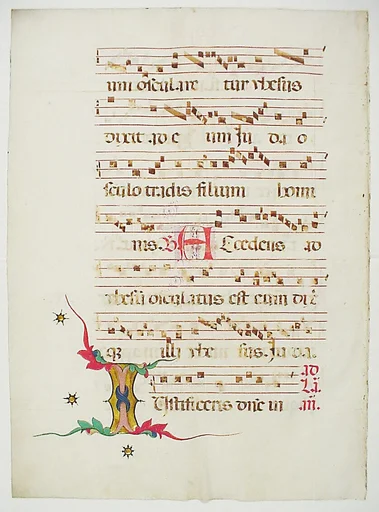 um oscularetur ihesus
dixit ad eum Juda o
sculo tradis filium homi
nis. Accedens ad
ihesu osculatus est eum di
illi ihesus. Juda. ad
Iustificeris dne in